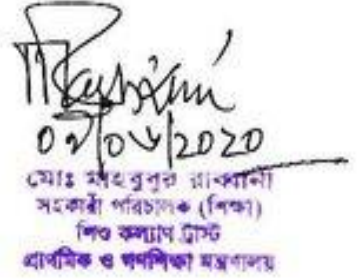 ০৭/০৬/2020
মোঃ মাহবুবুর রাব্বানী
সহকারী পরিচালক (শিক্ষা)
শিশু কল্যাণ ট্রাস্ট
প্রাথমিক ও গণশিক্ষা মন্ত্রণালয়